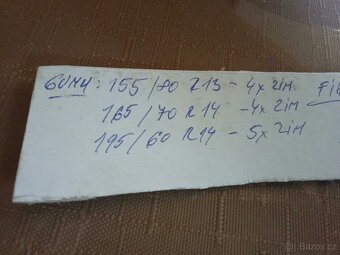 GUMY: 155/80 R13 - 4x ZIM
165/70 R14 - 4x ZIM
195/60 R14 - 5x ZIM
Bazos.cz